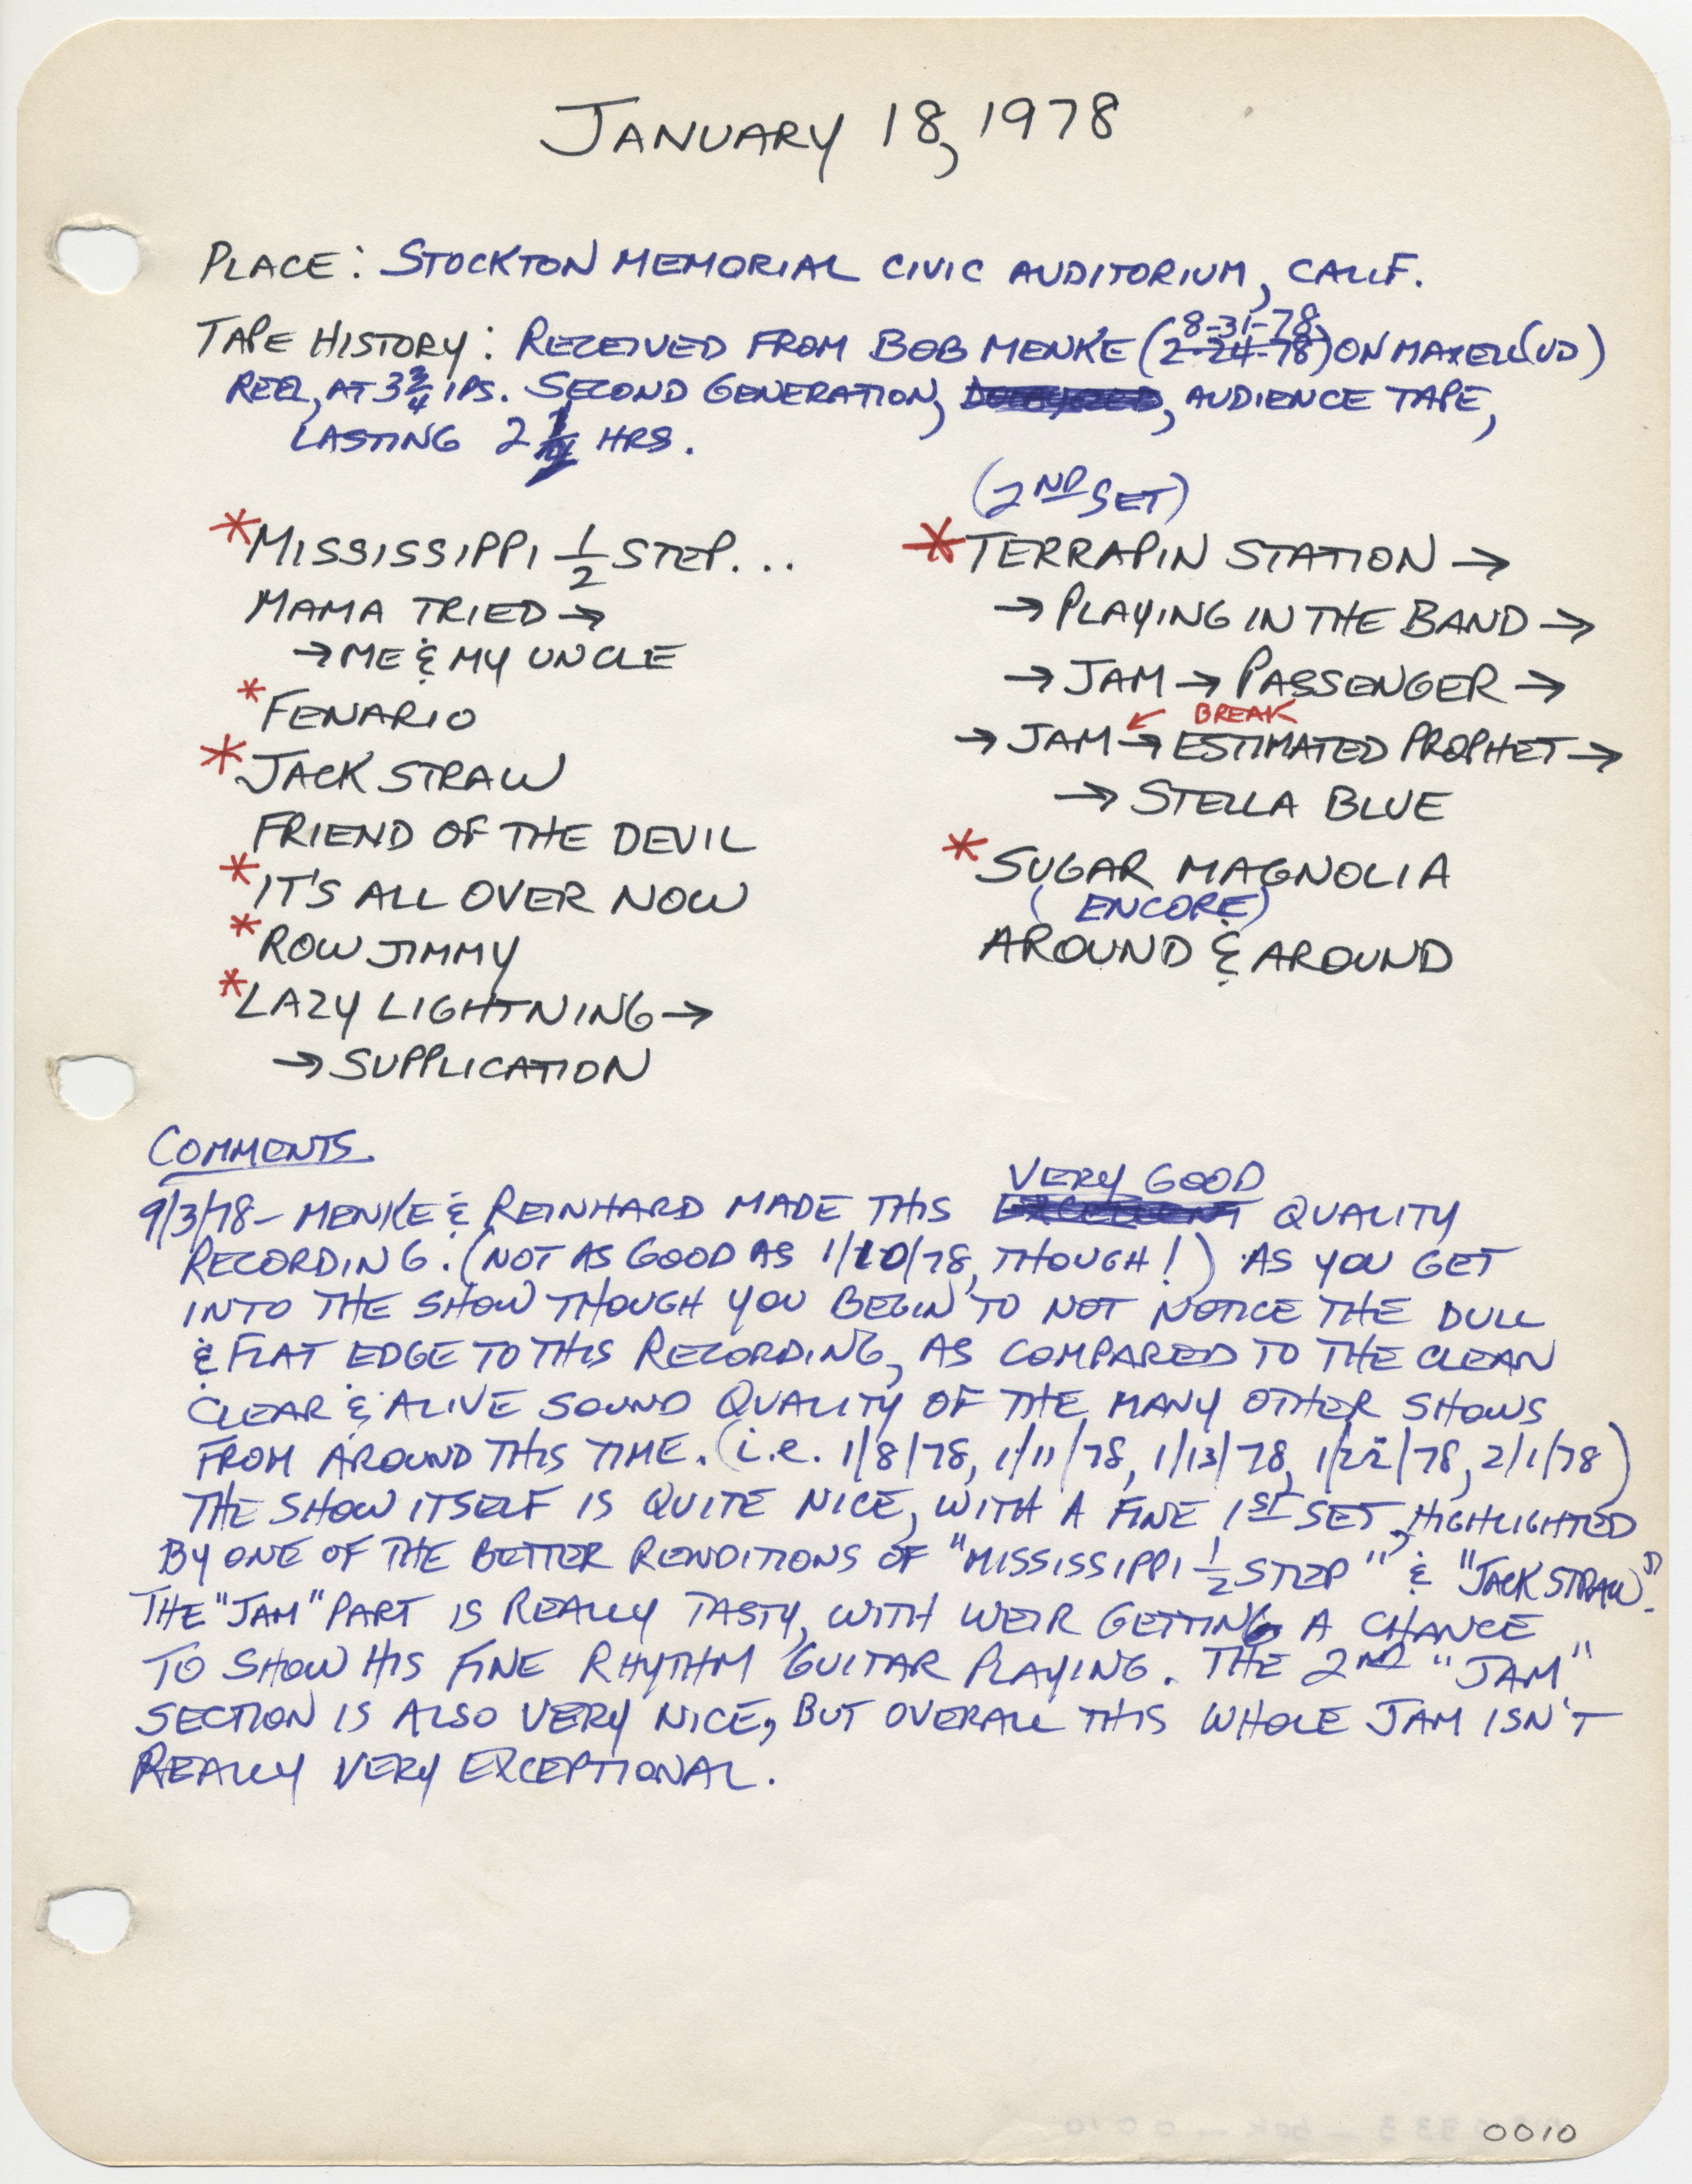 JANUARY 18, 1978
PLACE: STOCKTON MEMORIAL CIVIC AUDITORIUM, CALIF.
8-31-78
TAPE HISTORY: RECEIVED FROM BOB MENKE (2-24-78) ON MAXELL (UD)
REEL, AT 3 3/4 IPS. SECOND GENERATION, , AUDIENCE TAPE,
LASTING 2 HRS.
*MISSISSIPPI 1/2 STEP...
MAMA TRIED →
→ ME & MY UNCLE
*FENARIO
*JACK STRAW
FRIEND OF THE DEVIL
*IT'S ALL OVER NOW
*ROW JIMMY
*LAZY LIGHTNING →
→ SUPPLICATION
(2ND SET)
*TERRAPIN STATION →
→ PLAYING IN THE BAND →
→ JAM → PASSENGER →
↙ BREAK
→ JAM → ESTIMATED PROPHET →
→ STELLA BLUE
*SUGAR MAGNOLIA
(ENCORE)
AROUND & AROUND
COMMENTS
VERY GOOD
9/3/78 - MENKE & REINHARD MADE THIS EXCELLENT QUALITY
RECORDING. (NOT AS GOOD AS 1/10/78, THOUGH!) AS YOU GET
INTO THE SHOW THOUGH YOU BEGIN TO NOT NOTICE THE DULL
& FLAT EDGE TO THIS RECORDING, AS COMPARED TO THE CLEAN
CLEAR & ALIVE SOUND QUALITY OF THE MANY OTHER SHOWS
FROM AROUND THIS TIME. (i.e. 1/8/78, 1/11/78, 1/13/78, 1/22/78, 2/1/78)
THE SHOW ITSELF IS QUITE NICE, WITH A FINE 1ST SET, HIGHLIGHTED
BY ONE OF THE BETTER RENDITIONS OF "MISSISSIPPI 1/2 STEP" & "JACK STRAW".
THE "JAM" PART IS REALLY TASTY, WITH WEIR GETTING A CHANCE
TO SHOW HIS FINE RHYTHM GUITAR PLAYING. THE 2ND "JAM"
SECTION IS ALSO VERY NICE, BUT OVERALL THIS WHOLE JAM ISN'T
REALLY VERY EXCEPTIONAL.
0010